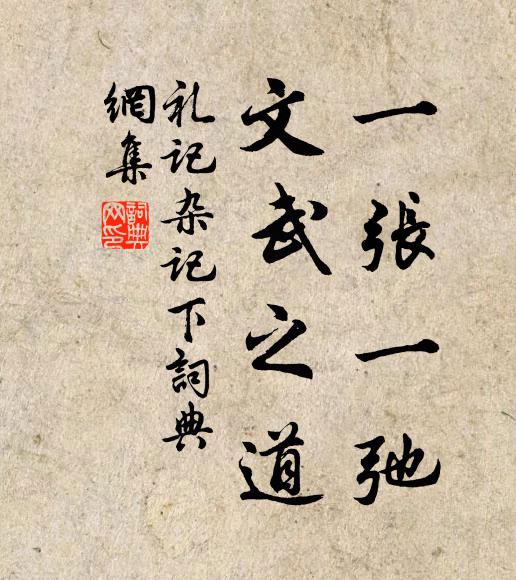 一張一弛
文武之道
礼记杂记下詞典
網集
詞典网印